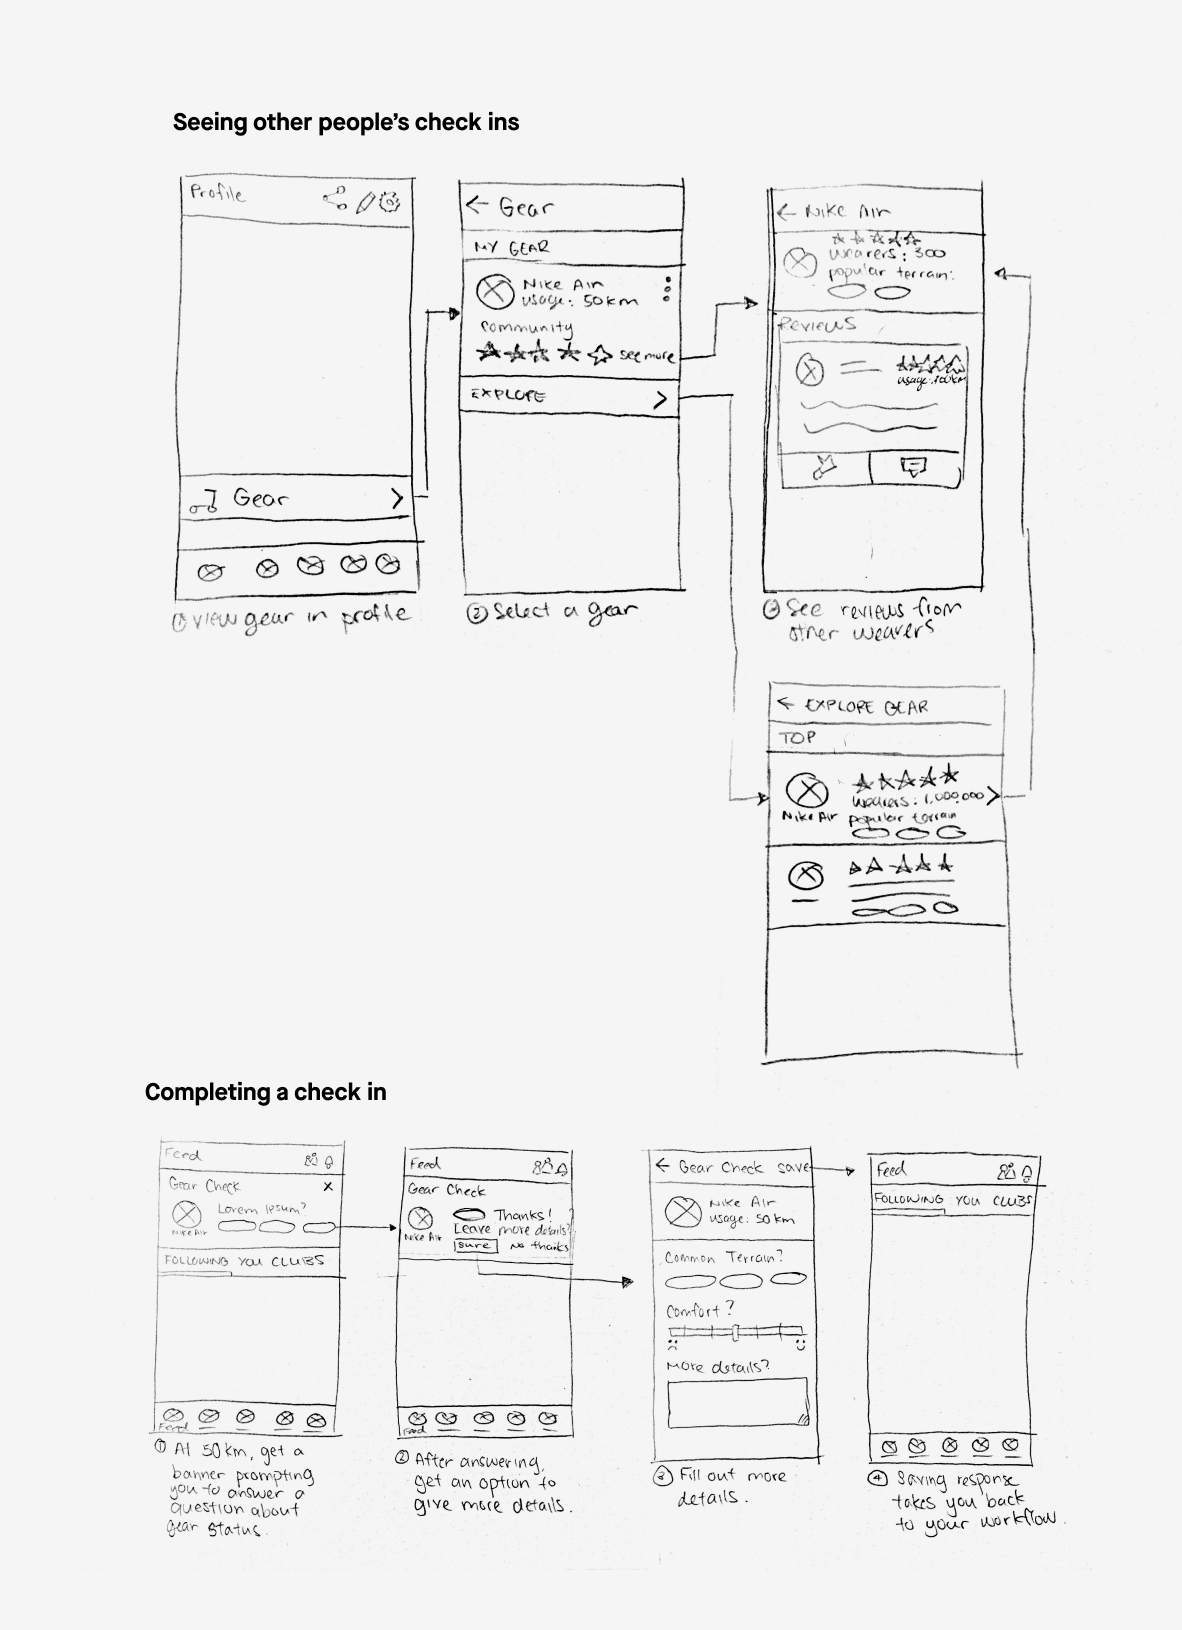 Seeing other people's check ins
Profile
Gear
① View gear in profile
← Gear
MY GEAR
Nike Air
usage: 50km
community
see more
EXPLORE
② Select a gear
← Nike Air
wearers: 300
popular terrain:
Reviews
usage: 100km
③ See reviews from
other wearers
← EXPLORE GEAR
TOP
wearers: 1,000,000
Nike Air
popular terrain
Completing a check in
Feed
Gear Check
X
Lorem Ipsum?
Nike Air
FOLLOWING YOU CLUBS
Feed
① At 50km, get a
banner prompting
you to answer a
question about
gear status.
Feed
Gear Check
Thanks!
Leave more details?
Nike Air
sure No thanks
Feed
② After answering,
get an option to
give more details.
← Gear Check save
Nike Air
usage: 50km
Common Terrain?
Comfort?
More details?
③ Fill out more
details.
Feed
FOLLOWING YOU CLUBS
④ Saving response
takes you back
to your workflow.